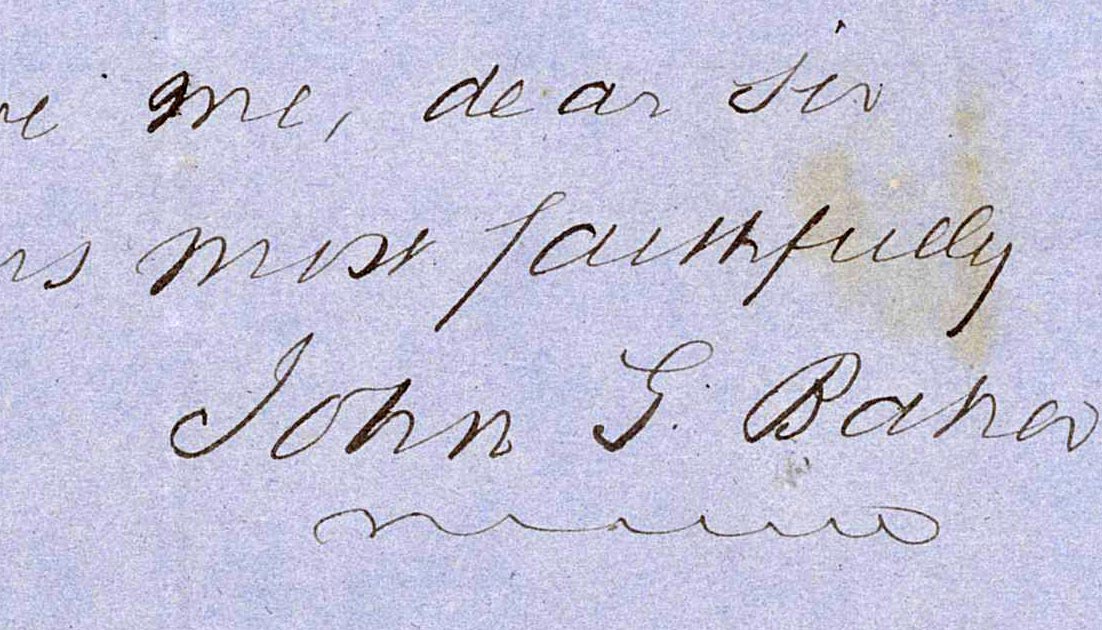 me, dear Sir
most faithfully
John G. Baker